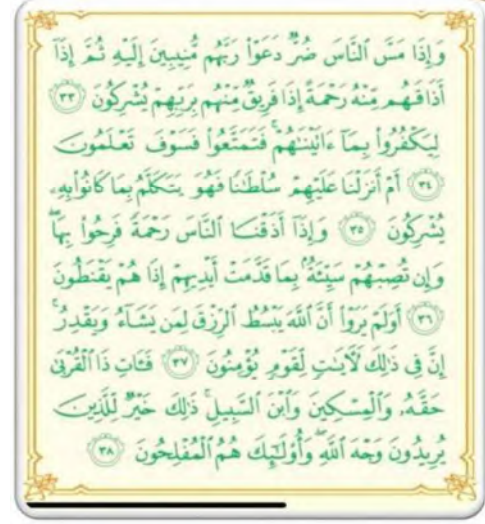 وَإِذَا مَسَّ ٱلنَّاسَ ضُرٌّ دَعَوْا۟ رَبَّهُم مُّنِيبِينَ إِلَيْهِ ثُمَّ إِذَآ
أَذَاقَهُم مِّنْهُ رَحْمَةً إِذَا فَرِيقٌ مِّنْهُم بِرَبِّهِمْ يُشْرِكُونَ ٣٣
لِيَكْفُرُوا۟ بِمَآ ءَاتَيْنَٰهُمْ ۚ فَتَمَتَّعُوا۟ فَسَوْفَ تَعْلَمُونَ
٣٤ أَمْ أَنزَلْنَا عَلَيْهِمْ سُلْطَٰنًا فَهُوَ يَتَكَلَّمُ بِمَا كَانُوا۟ بِهِۦ
يُشْرِكُونَ ٣٥ وَإِذَآ أَذَقْنَا ٱلنَّاسَ رَحْمَةً فَرِحُوا۟ بِهَا ۖ
وَإِن تُصِبْهُمْ سَيِّئَةٌۢ بِمَا قَدَّمَتْ أَيْدِيهِمْ إِذَا هُمْ يَقْنَطُونَ
٣٦ أَوَلَمْ يَرَوْا۟ أَنَّ ٱللَّهَ يَبْسُطُ ٱلرِّزْقَ لِمَن يَشَآءُ وَيَقْدِرُ ۚ
إِنَّ فِى ذَٰلِكَ لَءَايَٰتٍ لِّقَوْمٍ يُؤْمِنُونَ ٣٧ فَـَٔاتِ ذَا ٱلْقُرْبَىٰ
حَقَّهُۥ وَٱلْمِسْكِينَ وَٱبْنَ ٱلسَّبِيلِ ۚ ذَٰلِكَ خَيْرٌ لِّلَّذِينَ
يُرِيدُونَ وَجْهَ ٱللَّهِ ۖ وَأُو۟لَٰٓئِكَ هُمُ ٱلْمُفْلِحُونَ ٣٨